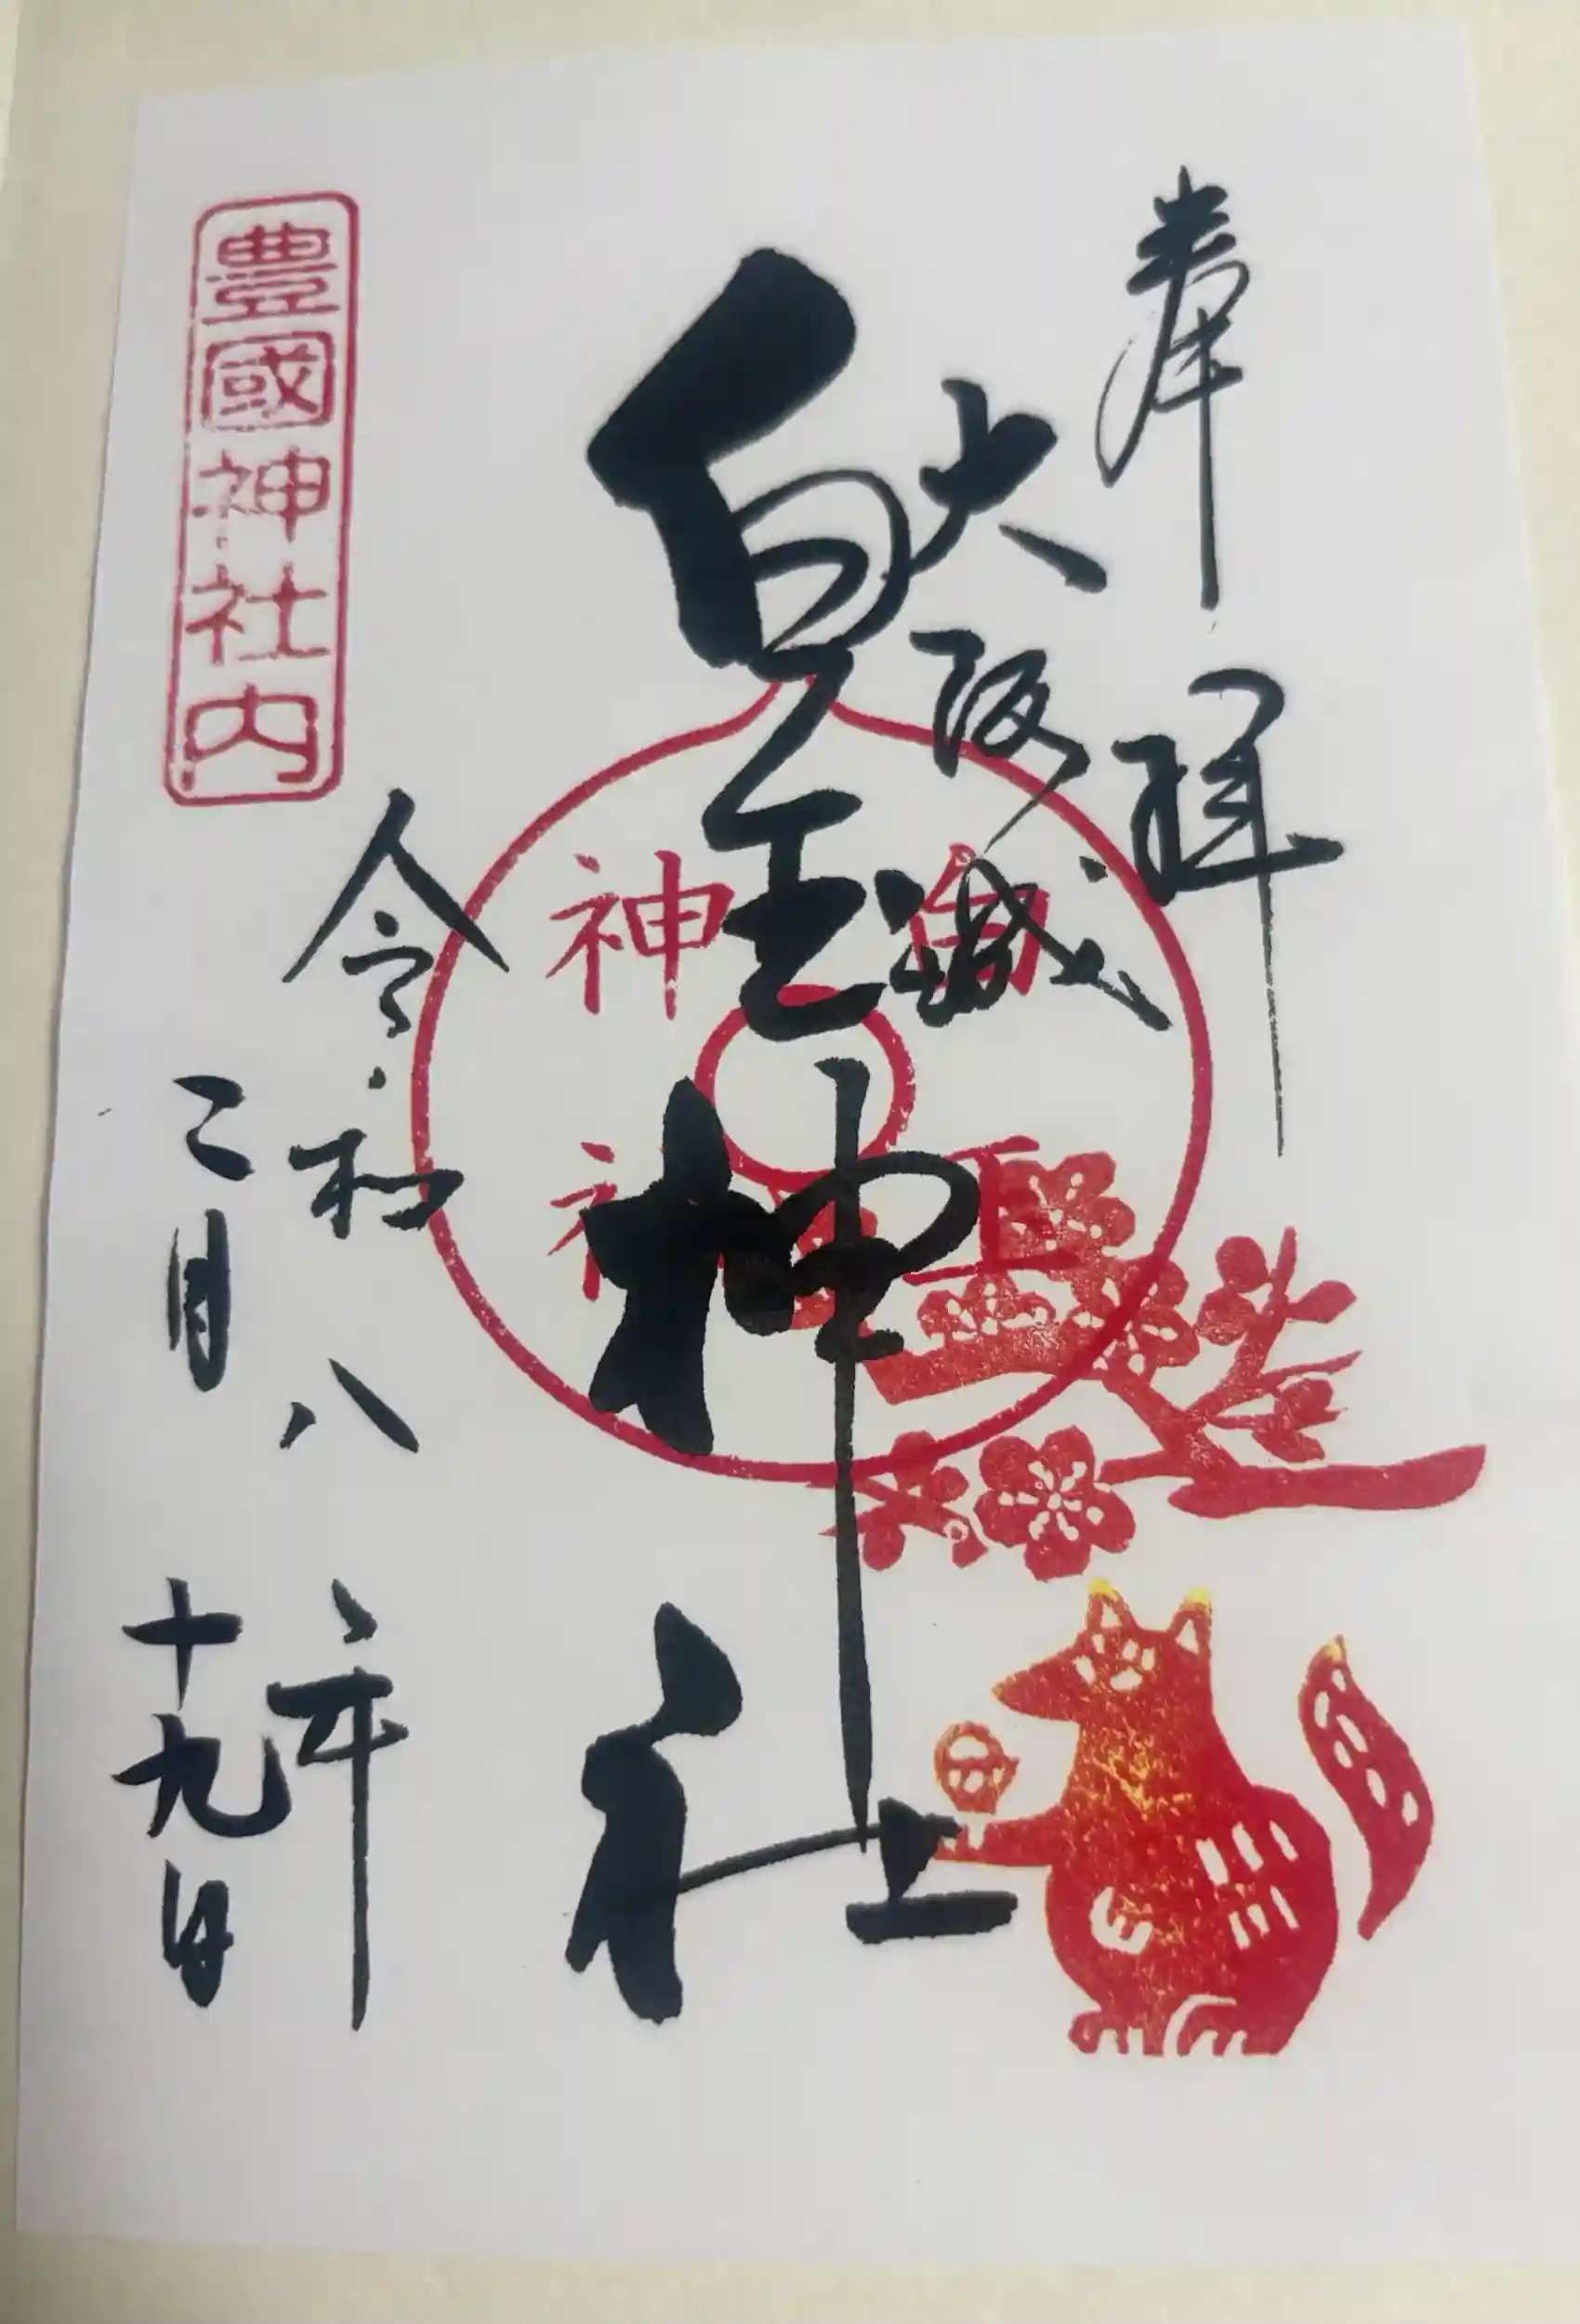 奉拝
大阪城
白玉神社
令和八年
二月十九日
豊國神社内
白玉
神社